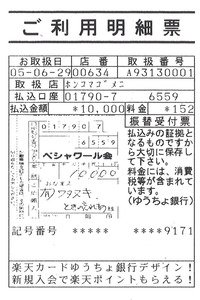 ご利用明細票
お取扱日 店番 取扱番号
05-06-29 00634 A93130001
取扱店 ホンコマゴメニ
払込口座 01790-7 6559
払込金額 *10,000 料金 *152
振替受付票
払込みの証拠となるものですから大切に保存して下さい。
料金には、消費税等が含まれています。
(ゆうちょ銀行)
01790 7
6559
ペシャワール会
10000
記号番号 ***** ****9171
楽天カードゆうちょ銀行デザイン!
新規入会で楽天ポイントもらえる!